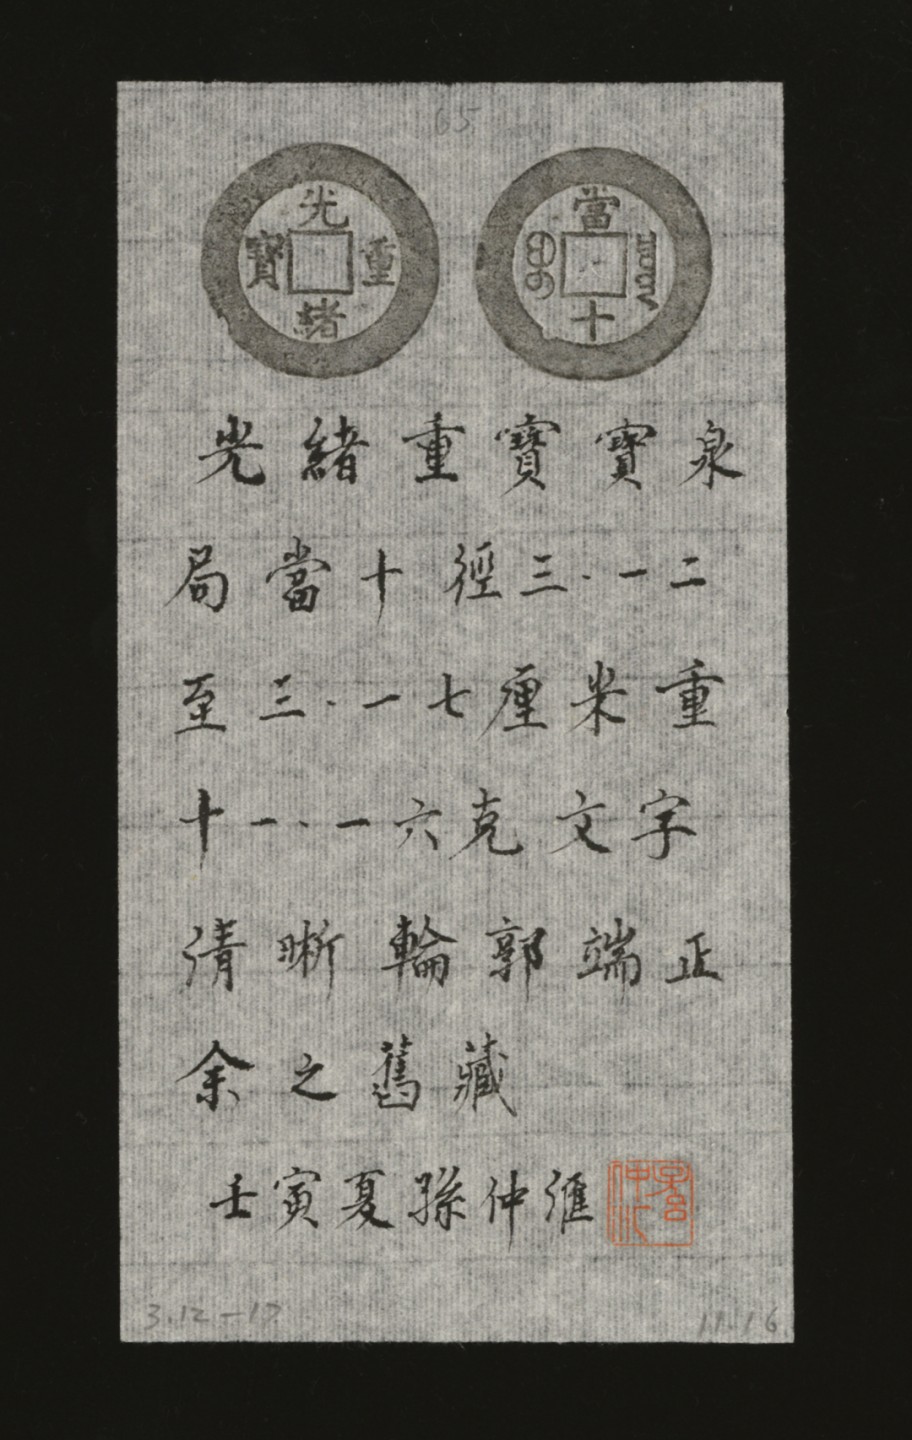 65
光緒重寶
當十
光緒重寶寶泉
局當十徑三·一二
至三·一七厘米重
十一·一六克文字
清晰輪郭端正
余之舊藏
壬寅夏孫仲滙
3.12-17
11.16